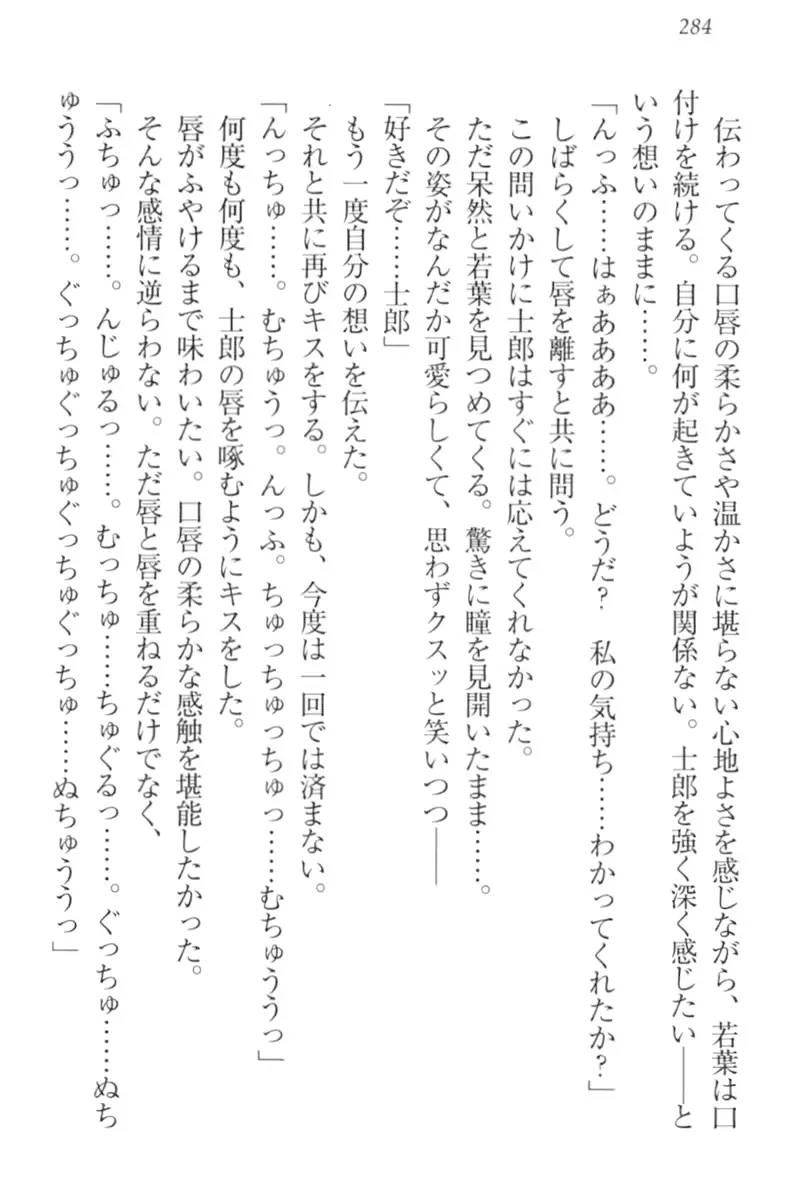 284
伝わってくる口唇の柔らかさや温かさに堪らない心地よさを感じながら、若葉は口
付けを続ける。自分に何が起きていようが関係ない。士郎を強く深く感じたい――と
いう想いのままに……。
「んっふ……はぁああああ……。どうだ？　私の気持ち……わかってくれたか？」
しばらくして唇を離すと共に問う。
この問いかけに士郎はすぐには応えてくれなかった。
ただ呆然と若葉を見つめてくる。驚きに瞳を見開いたまま……。
その姿がなんだか可愛らしくて、思わずクスッと笑いつつ――
「好きだぞ……士郎」
もう一度自分の想いを伝えた。
それと共に再びキスをする。しかも、今度は一回では済まない。
「んっちゅ……。むちゅうっ。んっふ。ちゅっちゅっちゅっ……むちゅううっ」
何度も何度も、士郎の唇を啄むようにキスをした。
唇がふやけるまで味わいたい。口唇の柔らかな感触を堪能したかった。
そんな感情に逆らわない。ただ唇と唇を重ねるだけでなく、
「ふちゅっ……。んじゅるっ……。むっちゅ……ちゅぐるっ……。ぐっちゅ……ぬち
ゅううっ……。ぐっちゅぐっちゅぐっちゅぐっちゅ……ぬちゅううっ」